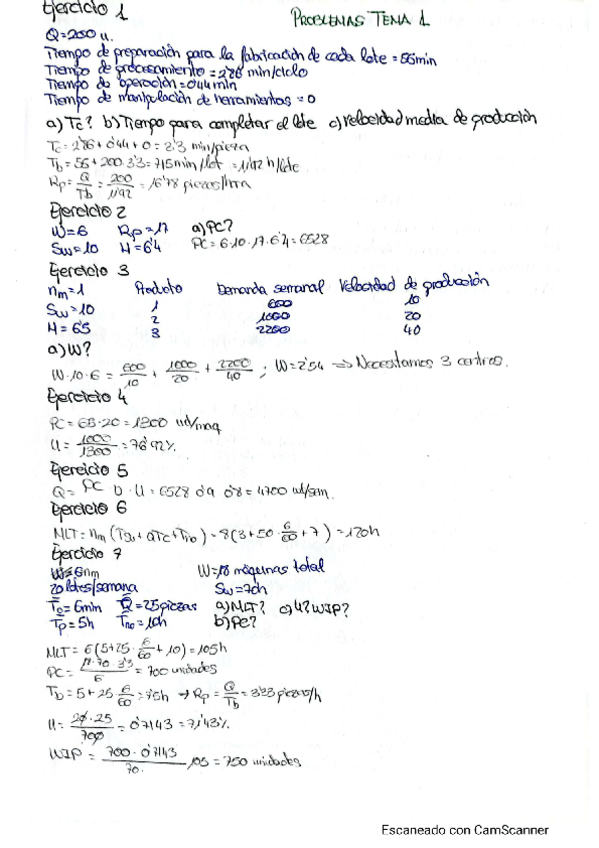 Ejercicio 1
PROBLEMAS TEMA 1
Q=200 u.
Tiempo de preparación para la fabricación de cada lote = 55min
Tiempo de procesamiento = 2'86 min/ciclo
Tiempo de operación = 0'44 min
Tiempo de manipulación de herramientas = 0
a) Tc? b) Tiempo para completar el lote c) velocidad media de producción
Tc = 2'86 + 0'44 + 0 = 3'3 min/pieza
Tb = 55 + 200·3'3 = 715min/lot = 11'92 h/lote
Rp = Q/Tb = 200/11'92 = 16'78 piezas/hora
Ejercicio 2
W=6 Rp=17 a) PC?
Sw=10 H=6'4 PC = 6·10·17·6'4 = 6528
Ejercicio 3
nm=1 Producto Demanda semanal Velocidad de producción
Sw=10 1 600 10
H=6'5 2 1000 20
3 2200 40
a) W?
W·10·6 = 600/10 + 1000/20 + 2200/40 ; W=2'54 => Necesitamos 3 centros.
Ejercicio 4
PC = 65·20 = 1300 ud/maq
U = 1000/1300 = 76'92%
Ejercicio 5
Q = PC · U = 6528 0'8 = 4700 ud/sem.
Ejercicio 6
MLT = nm (Tsu + QTc + Tno) = 8(3+50·6/60+7) = 120h
Ejercicio 7
W=18 máquinas total
20 lotes/semana Sw=70h
Tc=6min Q=25piezas a) MLT? c) WIP?
Tp=5h Tno=10h b) PC?
MLT = 6(5+25·6/60+10) = 105h
PC = ·70·3'3/6 = 700 unidades
Tb = 5+25·6/60 = 7'5h → Rp = Q/Tb = 3'33 piezas/h
U = 20·25/700 = 0'7143 = 71'43%
WIP = 700·0'7143/70 105 = 750 unidades
Escaneado con CamScanner